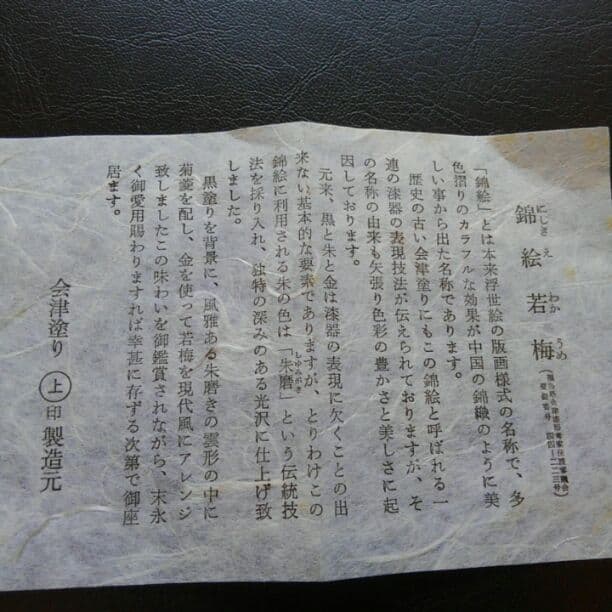 錦絵若梅
にしきえ わか うめ
「錦絵」とは本来浮世絵の版画様式の名称で、多
色摺りのカラフルな効果が中国の錦織のように美
しい事から出た名称であります。
歴史の古い会津塗りにもこの錦絵と呼ばれる一
連の漆器の表現技法が伝えられておりますが、そ
の名称の由来も矢張り色彩の豊かさと美しさに起
因しております。
元来、黒と朱と金は漆器の表現に欠くことの出
来ない基本的な要素でありますが、とりわけこの
錦絵に利用される朱の色は「朱磨」という伝統技
しゅみがき
法を採り入れ、独特の深みのある光沢に仕上げ致
しました。
黒塗りを背景に、風雅ある朱磨きの雲形の中に
菊菱を配し、金を使って若梅を現代風にアレンジ
致しましたこの味わいを御鑑賞されながら、末永
く御愛用賜わりますれば幸甚に存ずる次第で御座
居ます。
会津塗り 上 印 製造元